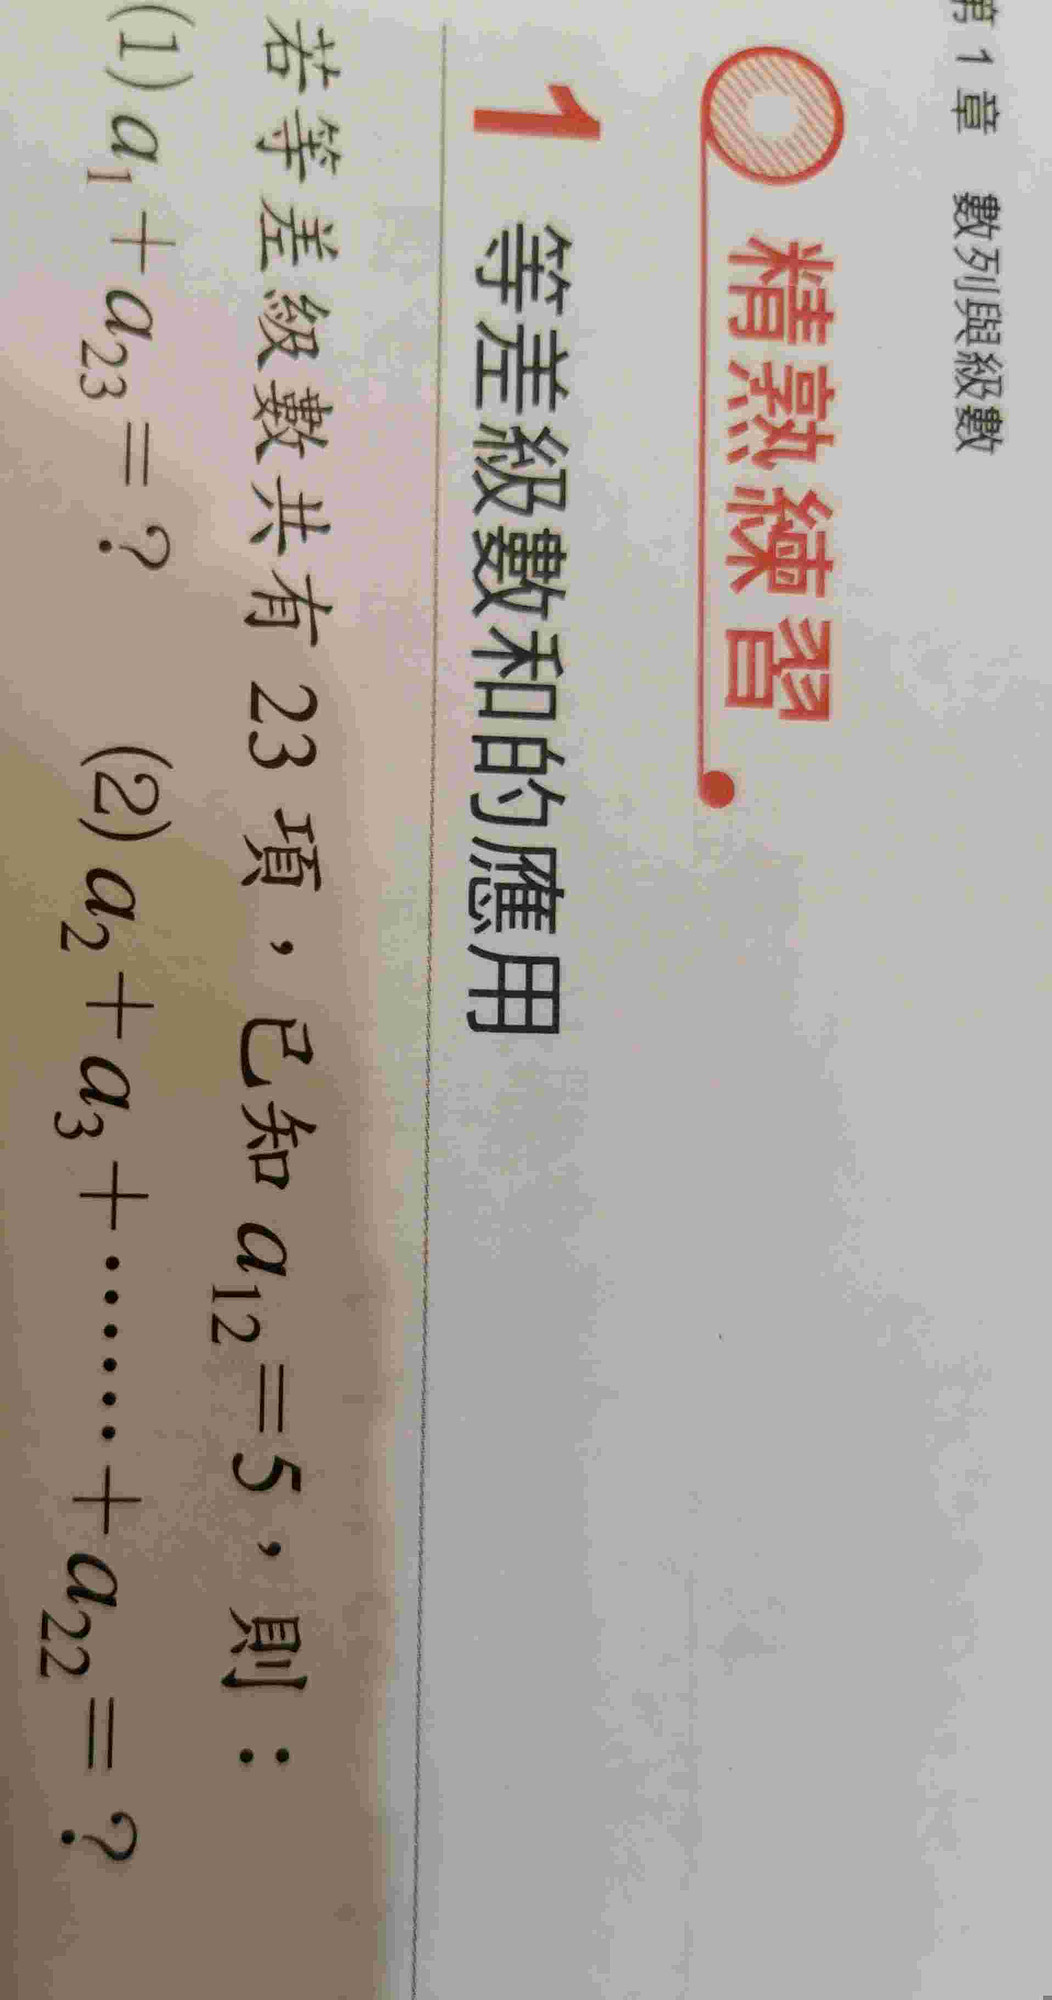 第 1 章 數列與級數
精熟練習
1 等差級數和的應用
若等差級數共有 23 項，已知 a₁₂＝5，則：
(1) a₁＋a₂₃＝？ (2) a₂＋a₃＋……＋a₂₂＝？